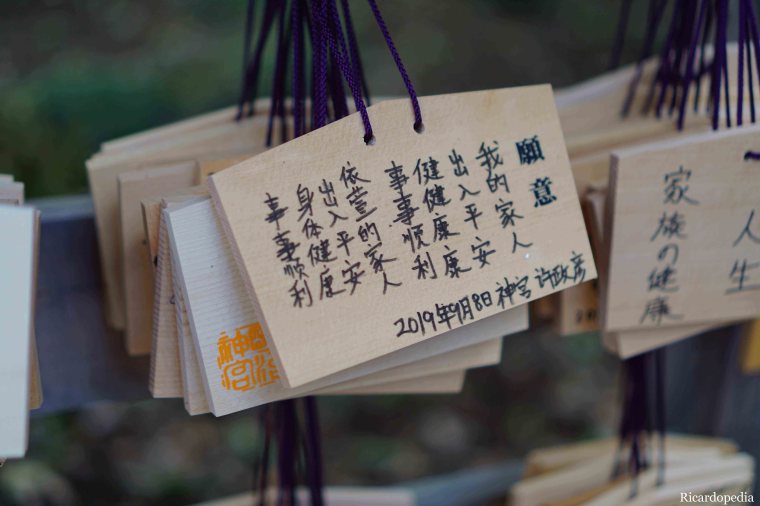 願意
我的家人
出入平安
健健康康
事事順利
依萱的家人
出入平安
身体健康
事事順利
2019年9月8 神宮 许政彦
家族の健康
人生
Ricardopedia